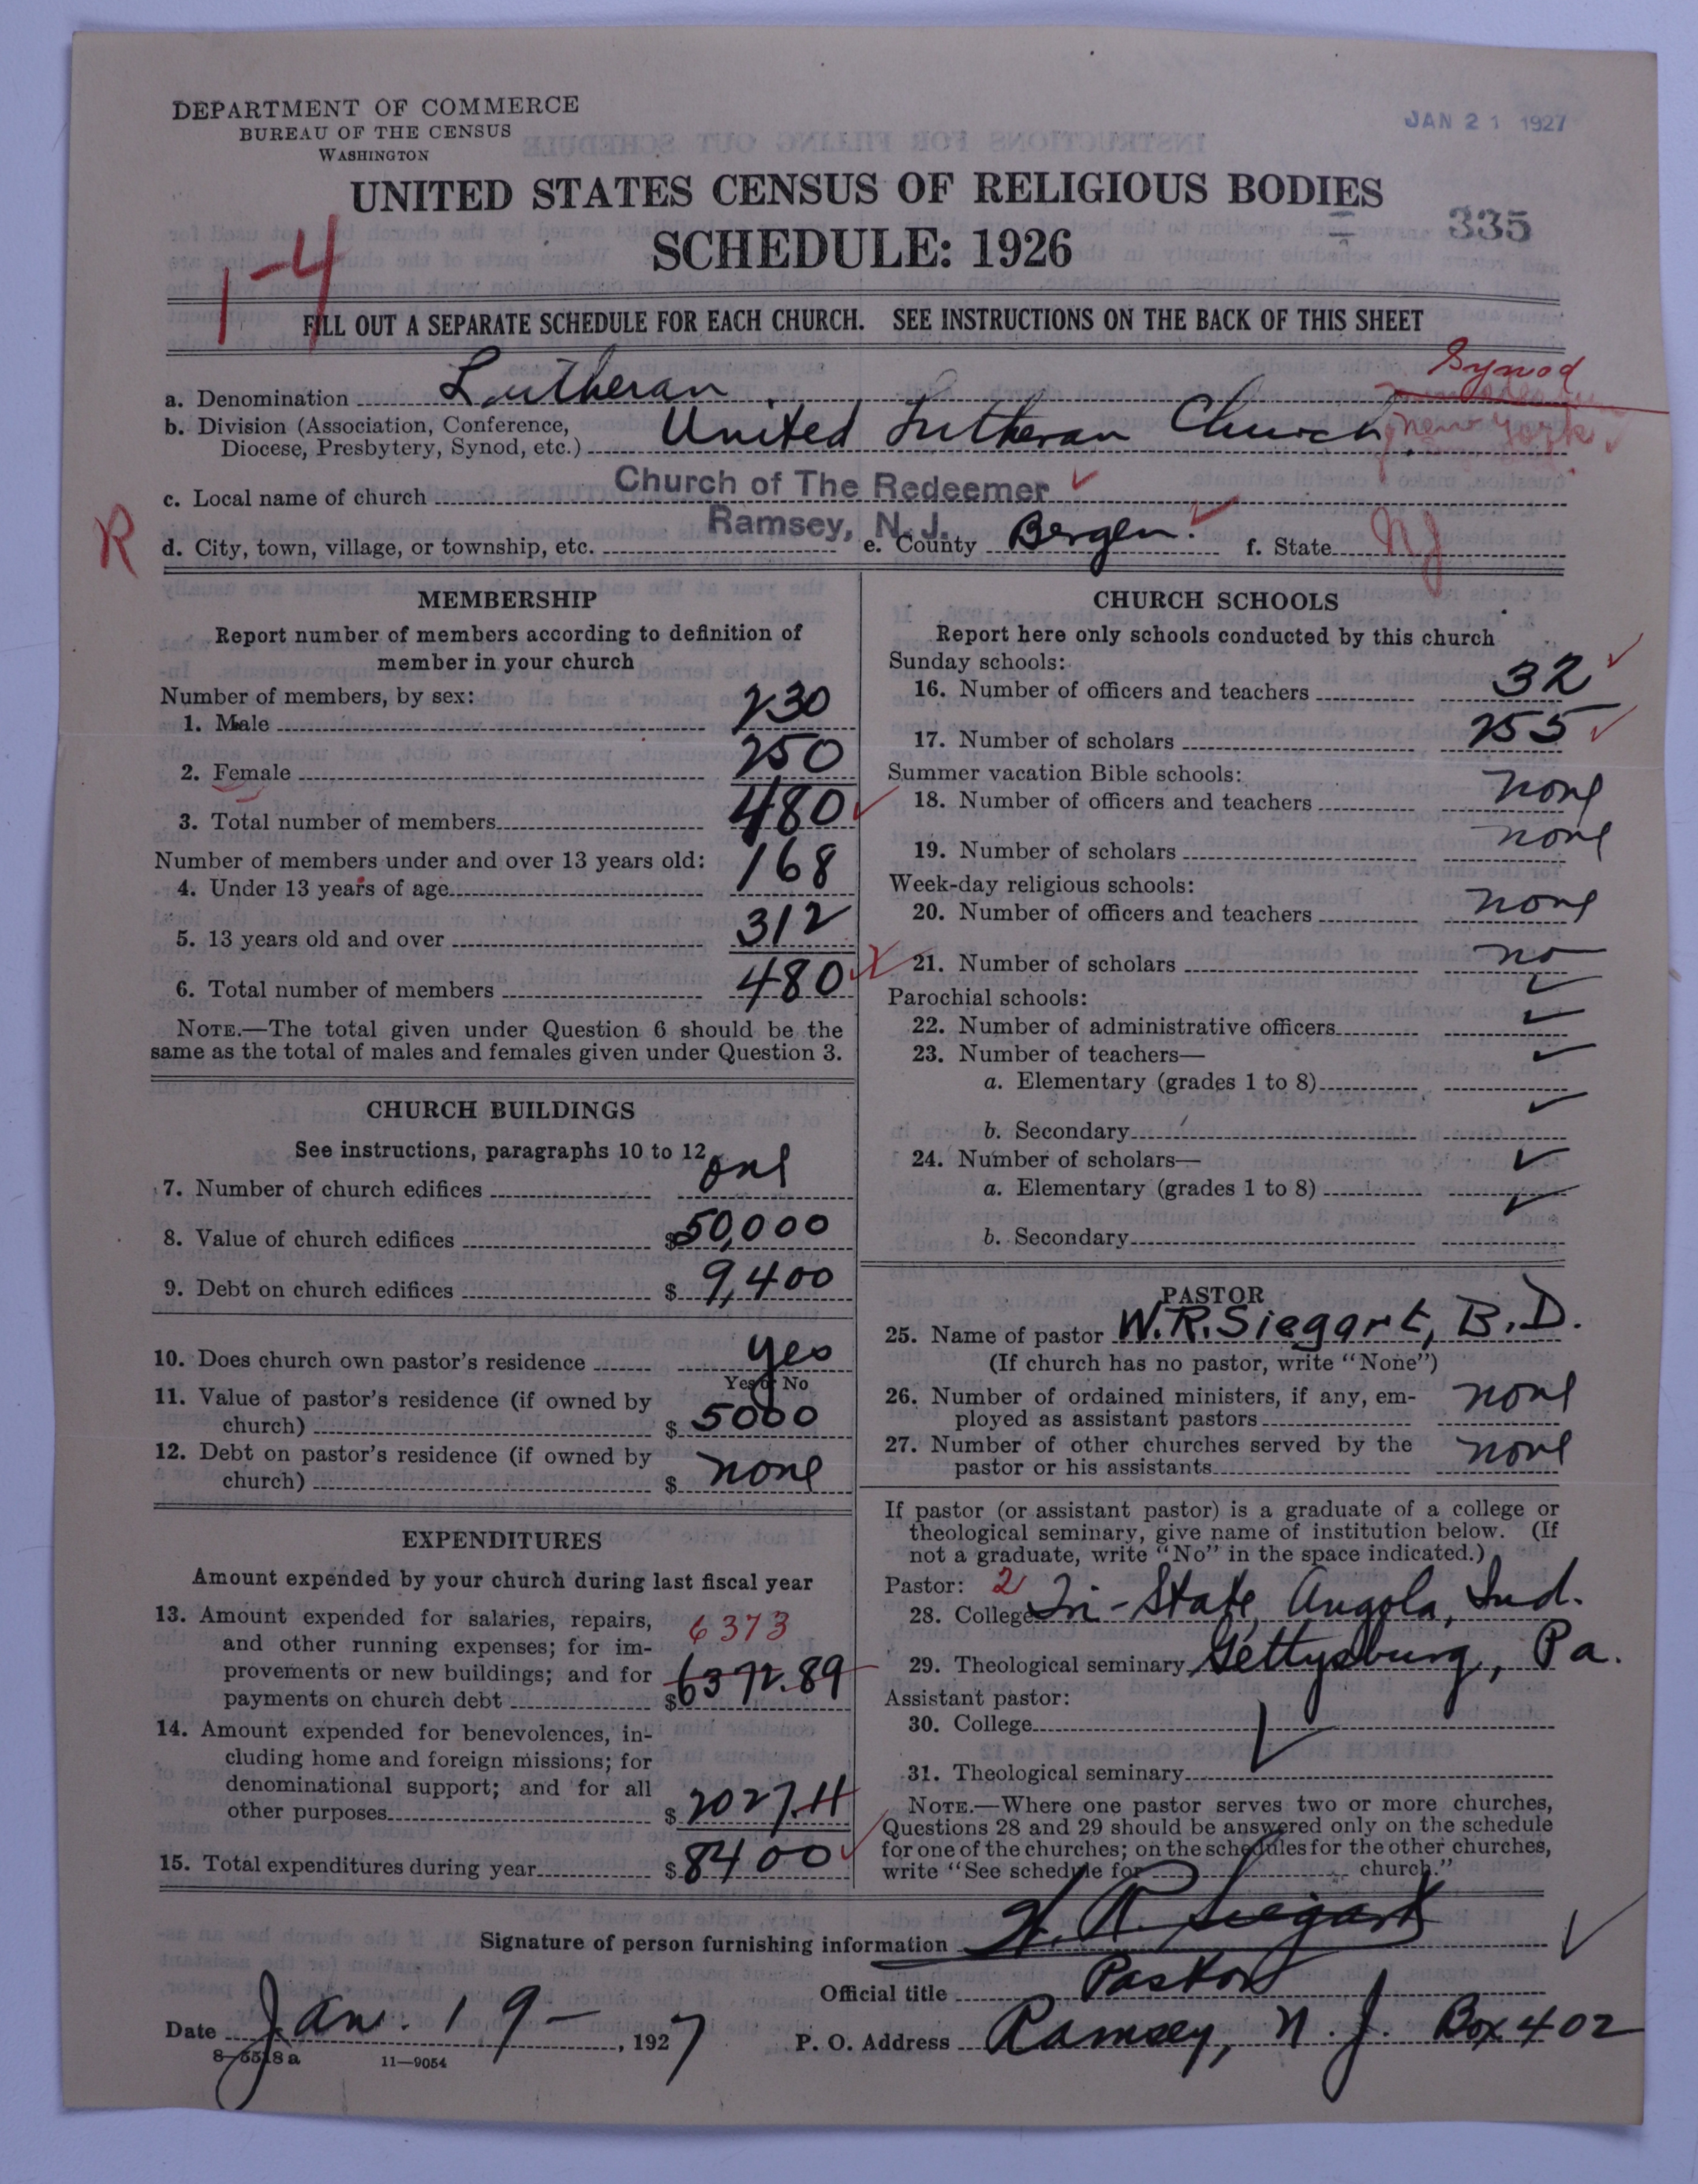 DEPARTMENT OF COMMERCE
BUREAU OF THE CENSUS
WASHINGTON
JAN 21 1927
UNITED STATES CENSUS OF RELIGIOUS BODIES
SCHEDULE: 1926
335
1-4
FILL OUT A SEPARATE SCHEDULE FOR EACH CHURCH. SEE INSTRUCTIONS ON THE BACK OF THIS SHEET
Synod
a. Denomination Lutheran
b. Division (Association, Conference, Diocese, Presbytery, Synod, etc.) United Lutheran Church New York
c. Local name of church Church of The Redeemer
R
d. City, town, village, or township, etc. Ramsey, N. J. e. County Bergen. f. State NJ
MEMBERSHIP
Report number of members according to definition of
member in your church
Number of members, by sex:
1. Male 230
2. Female 250
3. Total number of members 480
Number of members under and over 13 years old:
4. Under 13 years of age 168
5. 13 years old and over 312
6. Total number of members 480
NOTE.—The total given under Question 6 should be the
same as the total of males and females given under Question 3.
CHURCH BUILDINGS
See instructions, paragraphs 10 to 12
7. Number of church edifices one
8. Value of church edifices $50,000
9. Debt on church edifices $ 9,400
10. Does church own pastor's residence yes
Yes or No
11. Value of pastor's residence (if owned by
church) $ 5000
12. Debt on pastor's residence (if owned by
church) $ none
EXPENDITURES
Amount expended by your church during last fiscal year
13. Amount expended for salaries, repairs,
and other running expenses; for im-
provements or new buildings; and for
payments on church debt $6372.89
6373
14. Amount expended for benevolences, in-
cluding home and foreign missions; for
denominational support; and for all
other purposes $ 2027.11
15. Total expenditures during year $ 8400
CHURCH SCHOOLS
Report here only schools conducted by this church
Sunday schools:
16. Number of officers and teachers 32
17. Number of scholars 255
Summer vacation Bible schools:
18. Number of officers and teachers none
19. Number of scholars none
Week-day religious schools:
20. Number of officers and teachers none
21. Number of scholars no
Parochial schools:
22. Number of administrative officers
23. Number of teachers—
a. Elementary (grades 1 to 8)
b. Secondary
24. Number of scholars—
a. Elementary (grades 1 to 8)
b. Secondary
PASTOR
25. Name of pastor W.R. Siegart, B.D.
(If church has no pastor, write "None")
26. Number of ordained ministers, if any, em-
ployed as assistant pastors none
27. Number of other churches served by the
pastor or his assistants none
If pastor (or assistant pastor) is a graduate of a college or
theological seminary, give name of institution below. (If
not a graduate, write "No" in the space indicated.)
Pastor: 2
28. College Tri-State, Angola, Ind.
29. Theological seminary Gettysburg, Pa.
Assistant pastor:
30. College
31. Theological seminary
NOTE.—Where one pastor serves two or more churches,
Questions 28 and 29 should be answered only on the schedule
for one of the churches; on the schedules for the other churches,
write "See schedule for church."
Signature of person furnishing information W. R. Siegart
Official title Pastor
Date Jan. 19- , 1927 P. O. Address Ramsey, N. J. Box 402
8-5518a 11-9054